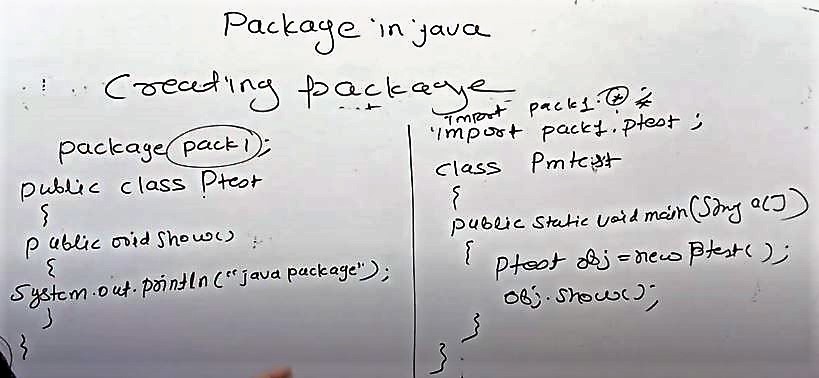 Package in java
Creating package
package pack1;
public class Ptest
{
public void show()
{
System.out.println("java package");
}
}
import pack1.*;
import pack1.ptest;
class Pmtest
{
public static void main(String a[])
{
Ptest obj = new Ptest();
obj.show();
}
}